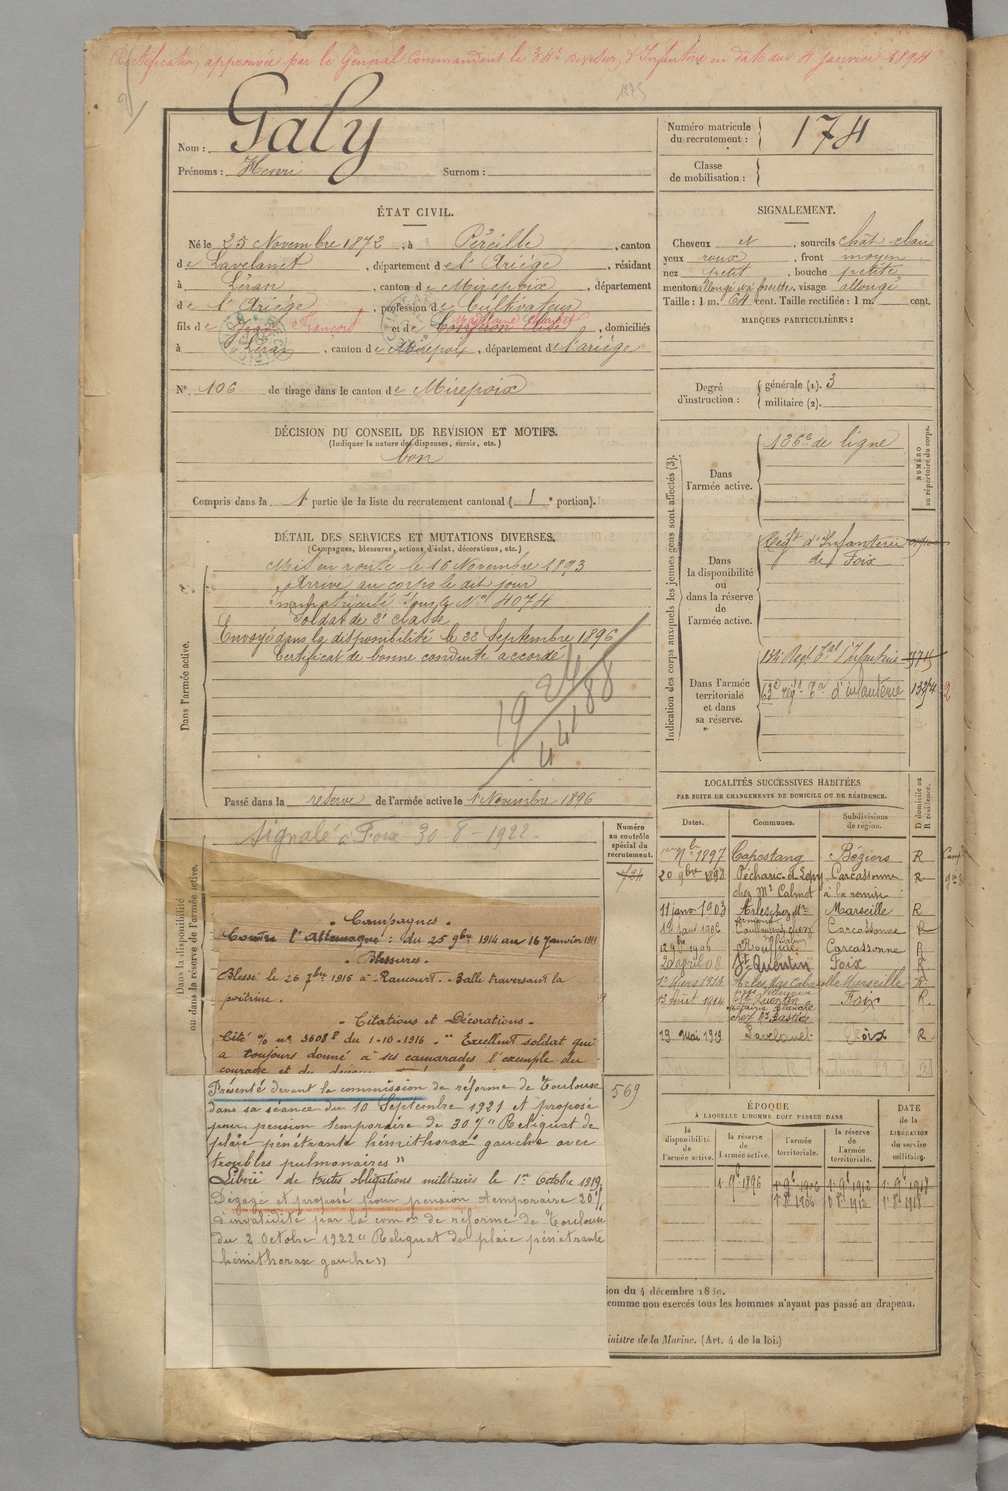 Rectification approuvée par le Général Commandant la 34e division d'Infanterie en date du 4 janvier 1894
Nom : Galy
Prénoms : Henri Surnom :
Numéro matricule du recrutement : 174
Classe de mobilisation :
ÉTAT CIVIL.
Né le 25 Novembre 1872, à Péreille, canton
de Lavelanet, département de l'Ariège, résidant
à Léran, canton de Mirepoix, département
de l'Ariège, profession de Cultivateur
fils de Jean François et de, domiciliés
à Léran, canton de Mirepoix, département de l'ariège
N° 106 de tirage dans le canton de Mirepoix
DÉCISION DU CONSEIL DE REVISION ET MOTIFS.
(Indiquer la nature des dispenses, sursis, etc.)
bon
Compris dans la 1 partie de la liste du recrutement cantonal (1e portion).
DÉTAIL DES SERVICES ET MUTATIONS DIVERSES.
(Campagnes, blessures, actions d'éclat, décorations, etc.)
Dans l'armée active.
Mis en route le 16 Novembre 1893
Arrivé au corps le dit jour
Immatriculé sous le No 4074
Soldat de 2e classe
Envoyé dans la disponibilité le 22 Septembre 1896
Certificat de bonne conduite accordé
Passé dans la réserve de l'armée active le 1 Novembre 1896
Dans la disponibilité ou dans la réserve de l'armée active.
Signalé à Foix 30-8-1922.
Numéro au contrôle spécial du recrutement.
- Campagnes -
Contre l'Allemagne : du 25 9bre 1914 au 16 Janvier 1919
- Blessures -
Blessé le 26 7bre 1916 à Rancourt. - Balle traversant la
poitrine.
- Citations et Décorations -
Cité % n° 3608 du 1-10-1916 - "Excellent soldat qui
a toujours donné à ses camarades l'exemple du
courage et du
Présenté devant la commission de réforme de Toulouse
dans sa séance du 10 Septembre 1921 et proposé
pour pension temporaire de 30% "Reliquat de
plaie pénétrante hémithorax gauche avec
troubles pulmonaires"
Libéré de toutes obligations militaires le 1er Octobre 1919.
Dégagé et proposé pour pension temporaire 20%
d'invalidité par la comon de réforme de Toulouse
du 2 Octobre 1922 "Reliquat de plaie pénétrante
hémithorax gauche"
569
SIGNALEMENT.
Cheveux et, sourcils chât clair
yeux roux, front moyen
nez petit, bouche petite,
menton allongé à fossette, visage allongé
Taille : 1 m. 64 cent. Taille rectifiée : 1 m. cent.
MARQUES PARTICULIÈRES :
Degré d'instruction : générale (1). 3
militaire (2).
Indication des corps auxquels les jeunes gens sont affectés (3).
NUMÉRO au répertoire du corps.
Dans l'armée active. 126e de ligne
Dans la disponibilité ou dans la réserve de l'armée active. Régt d'Infanterie
de Foix
Dans l'armée territoriale et dans sa réserve. 134 Régt tal d'Infanterie
LOCALITÉS SUCCESSIVES HABITÉES
PAR SUITE DE CHANGEMENTS DE DOMICILE OU DE RÉSIDENCE.
D domicile ou R résidence.
Dates. Communes. Subdivisions de région.
Nbre 1897 Capestang Béziers R
20 9bre 1898 Carcassonne R
chez Mr Calmet à la remise
11 janv 1903 Arles Marseille R
1906 Carcassonne R
1906 Rouffiac Carcassonne R
20 avril 08 St Quentin Foix R
Marseille R
1er Août 1914 St Quentin Foix R
19 Mai 1919 Lavelanet Foix R
ÉPOQUE
À LAQUELLE L'HOMME DOIT PASSER DANS
DATE de la LIBÉRATION du service militaire.
la disponibilité de l'armée active.
la réserve de l'armée active.
l'armée territoriale.
la réserve de l'armée territoriale.
1 9b 1896 1 9b 1906 1 9b 1912 1 9b 1918
1 8b 1906 1 8b 1912 1 8b 1918
comme non exercés tous les hommes n'ayant pas passé au drapeau.
inistre de la Marine. (Art. 4 de la loi.)